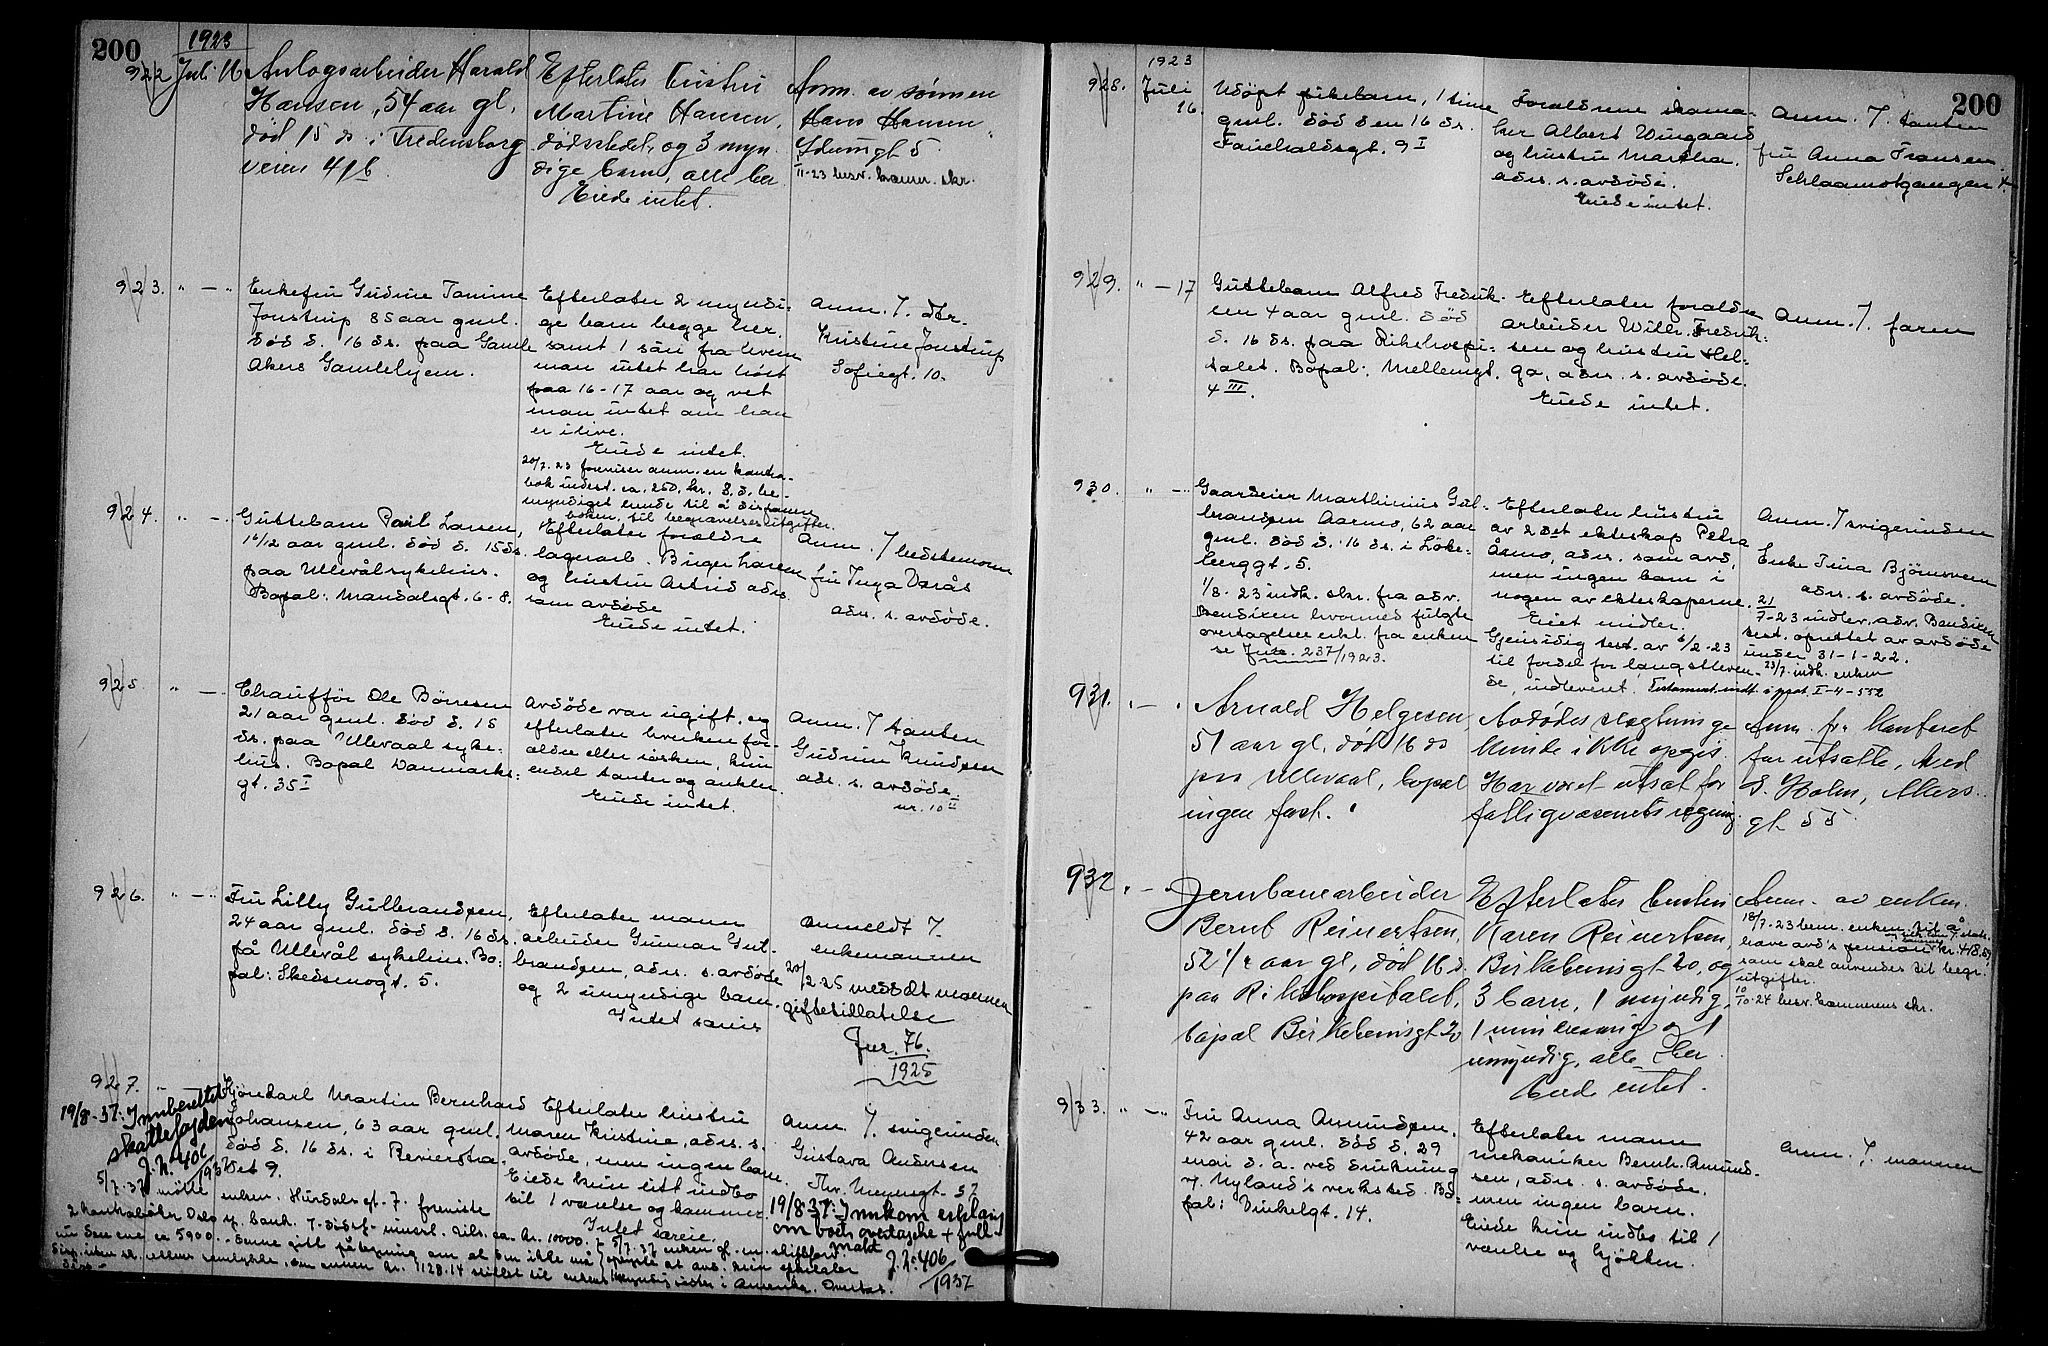 200
1923
922 Juli 16 Anlogsarbeider Harald
Hansen, 54 aar gl.
død 15 ds. i Fredensborg
veien 41 b
Efterlater hustru
Martine Hansen,
dødsstedet, og 3 myn
dige barn, alle her
Eiede intet.
Anm. av sønnen
Hans Hansen
gt 5
II-23 besv. komm. skr.
923. " — " Enkefru Gudrine Tomine
Jonstrup 85 aar gml.
død d. 16 ds. paa Gamle
Akers Gamlehjem.
Efterlater 2 myndi-
ge barn begge her,
samt 1 søn fra hvem
man intet har hørt
paa 16-17 aar og vet
man intet om han
er ilive.
Eiede intet.
20/7.23 foreviser anm. en kontra-
bok indest. ca. 250. kr. S.d. be-
myndiget til å disponere
boken til begravelsesutgifter.
Anm. f. dtr.
Kristine Jonstrup
Sofiegt. 10.
924. " — " Guttebarn Paul Larsen,
1 6/12 aar gml. død d. 15 ds.
paa Ullevål sykehus.
Bopal: Mandalsgt. 6-8.
Efterlater forældre
lagerarb. Birger Larsen
og hustru Astrid adrs.
som avdøde
Eiede intet.
Anm. f bedstemoren
fru Inga Varås
adrs. s. avdøde.
925. " — Chauffør Ole Børresen
21 aar gml. død d. 15
ds. paa Ullevaal syke-
hus. Bopal Danmarks-
gt. 35 I
Avdøde var ugift, og
efterlater hverken for-
ældre eller søsken, kun
endel tanter og onkler.
Eiede intet.
Anm. f tanten
Gudrun Knudsen
adr. s. avdøde.
nr. 10 II
926. " — " Fru Lilly Gulbrandsen,
24 aar gml. død d. 16 ds.
på Ullevål sykehus. Bo-
pal: Skedsmogt. 5.
Efterlater mann
arbeider Gunnar Gul-
brandsen, adrs. s. avdøde
og 2 umyndige barn.
Intet særeie
Anmeldt f.
enkemannen
20/2 25 meddelt mannen
giftetillatelse
Jnr. 76.
1925
927. " Kjørekarl Martin Bernhard
Johansen, 63 aar gml.
død d. 16 ds. i Revierstræ-
det 9.
Efterlater hustru
Maren Kristine, adrs. s.
avdøde, men ingen barn.
Eiede kun litt indbo
til 1 værelse og kammer.
Intet særeie.
Anm. f. svigerinden
Gustava Andersen
Thv. Meyersgt. 57
19/8-37: Innberettet
skattefogden
J.N. 406
1937
19/8 37: Innkom erklæring
om boets overtagelse + full-
makt
J. Nr. 406/1937
5/7.37 møtte enken. Hurdalsgt. 7. foreviste
2 kontrabøker Oslo
928. 1923 Juli 16. Udøpt pikebarn, 1 time
gml. død den 16 ds.
Fauchaldsgt. 9 I
Forældrene skoma-
ker Albert Wingaard
og hustru Martha.
adrs. s. avdøde.
Eiede intet.
Anm. f. tanten
fru Anna Fransen
4.
200
929. " — 17 Guttebarn Alfred Fredrik-
sen 4 aar gml. død
d. 16 ds. paa Rikshospi-
talet. Bopal: Mellemgt.
4 III.
Efterlater forældre
arbeider Wilh. Fredrik-
sen og hustru Hel-
ga, adrs. s. avdøde.
Eiede intet.
Anm. f. faren
930. " — " Gaardeier Marthinius Gul-
brandsen Aarmo, 62 aar
gml. død d. 16 ds. i Løke-
berggt. 5.
1/8. 23 indk. skr. fra adv.
Bendixen hvormed fulgte
overtagelseserkl. fra enken
se Jnr. 237/1923.
Efterlater hustru
av 2det ekteskap Petra
Årmo, adrs. som avd,
men ingen barn i
nogen av ekteskaperne.
Eiet midler.
Gjensidig test. av 6/2-23
til fordel for længstleven-
de, indleveret. Testament indt. i prot. I-4-552
Anm. f svigerinden
Enke Tina Bjørnsveen
adrs. s. avdøde.
21/7-23 indlev. adv. Bendixen
test. oprettet av avdøde
under 31-1-22.
23/7. indk. enken
931. " — " Arnold Helgesen,
51 aar gl. død 16 ds
paa Ullevaal, bopal
ingen fast.
Avdødes slegtninge
kunde ikke opgis.
Har været utsat for
fattigvæsenets regning.
Anm. fra Kontoret
for utsatte, ved
S. Holm, Akers-
gt. 55
932. " — " Jernbanearbeider
Bernt Reinertsen,
52 1/2 aar gl, død 16 ds.
paa Rikshospitalet,
bopal Birkebeinsgt 20
Efterlater hustru
Karen Reinertsen,
Birkebeinsgt 20, og
3 barn, 1 myndig,
1 mindreaarig og 1
umyndig, alle her
Eiede intet.
Anm. av enken.
18/7-23 bem. enken til å
hæve avd's pension kr. 418.59
som skal anvendes til begr.
utgifter.
10/10-24 besv. kommunens skr.
933. " — " Fru Anna Amundsen,
42 aar gml. død d. 29
mai d. a. ved drukning
v. Nylands verksted. Bo-
pal: Vinkelgt. 14.
Efterlater mann
mekaniker Bernh. Amund-
sen, adrs. s. avdøde,
men ingen barn.
Eiede kun indbo til 1
værelse og kjøkken.
Anm. f. mannen